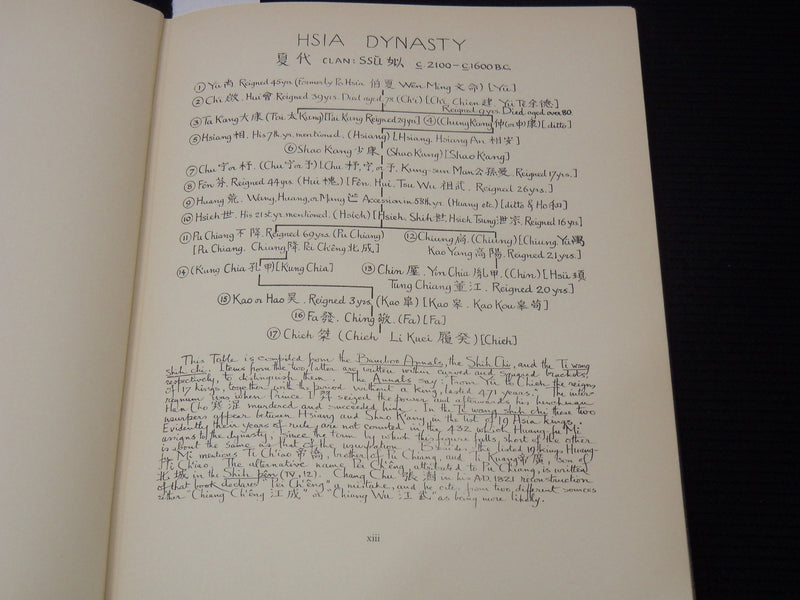 HSIA DYNASTY
夏代 CLAN: SSŬ 姒 c. 2100–c.1600 B.C.
① Yü 禹 Reigned 45 yrs. (formerly Po Hsia 伯夏 Wên Ming 文命) [Yü]
② Ch'i 啟, Hui 會. Reigned 39 yrs. Died aged 78 (Ch'i) [Ch'i, Chien 建, Yü 余德]
Reigned 9 yrs. Died, aged over 80.
③ T'ai Kang 大康 (T'ai 太 Kang) [T'ai Kang Reigned 29 yrs] ④ (Chung Kang 仲 (or 中) 康) [ditto]
⑤ Hsiang 相. His 7th yr. mentioned. (Hsiang) [Hsiang. Hsiang An. 相安]
⑥ Shao Kang 少康 (Shao Kang) [Shao Kang]
⑦ Chu 宁 or 杼. (Chu 宁 or 予) [Chu 杼, 宁, or 予. Kung-sun Man 公孫曼. Reigned 17 yrs.]
⑧ Fên 芬. Reigned 44 yrs. (Hui 槐) [Fên. Hui. Tsu Wu. 祖武. Reigned 26 yrs.]
⑨ Huang 荒. Wang, Huang, or Mang 芒 Accession in 58th yr. (Huang etc.) [ditto & Ho 和]
⑩ Hsieh 世. His 21st yr. mentioned. (Hsieh) [Hsieh, Shih 世, Hsieh Tsung 泄宗. Reigned 16 yrs]
⑪ Pu Chiang 不降. Reigned 69 yrs. (Pu Chiang)
[Pu Chiang. Chiang 降. Pei Ch'êng 北成]
⑫ Chiung 扃. (Chiung) [Chiung. Yü 禺
Kao Yang 高陽. Reigned 21 yrs.]
⑭ (Kung Chia 孔甲) [Kung Chia]
⑬ Chin 廑. Yin Chia 胤甲. (Chin) [Hsü 頊
Tung Chiang 董江. Reigned 20 yrs.]
⑮ Kao or Hao 昊. Reigned 3 yrs. (Kao 皋) [Kao 皋. Kao Kou 皋苟]
⑯ Fa 發. Ching 敬. (Fa) [Fa]
⑰ Chieh 桀 (Chieh Li Kuei 履癸) [Chieh]
This Table is compiled from the Bamboo Annals, the Shih Chi, and the Ti wang
shih chi. Items from the two latter are written within curved and squared brackets,
respectively, to distinguish them. The Annals say: "From Yü to Chieh, the reigns
of 17 kings, together with the period without a king, lasted 471 years." The inter-
regnum was when Prince I 羿 seized the power and afterwards his henchman
Han Cho 寒浞 murdered and succeeded him. In the Ti wang shih chi these two
usurpers appear between Hsiang and Shao Kang, in the list of 19 Hsia Kings.
Evidently their years of rule are not counted in the 432 which Huang-fu Mi
assigns to the dynasty, since the term by which this figure falls short of the other
is about the same as that of the usurpation. Besides the listed 19 kings, Huang-
fu Mi mentions Ti Ch'iao 帝喬, brother of Pu Chiang, and Ti Kuang 帝廣, son of
Ti Ch'iao. The alternative name Pei Ch'êng, attributed to Pu Chiang, is written
北城 in the Shih pên (IV, 12). Chang Chu 張澍 in his A.D. 1821 reconstruction
of that book declares "Pei Ch'êng" a mistake, and he cites from two different sources
either "Chiang Ch'êng 江成" or "Chiang Wu 江武" as being more likely.
xiii